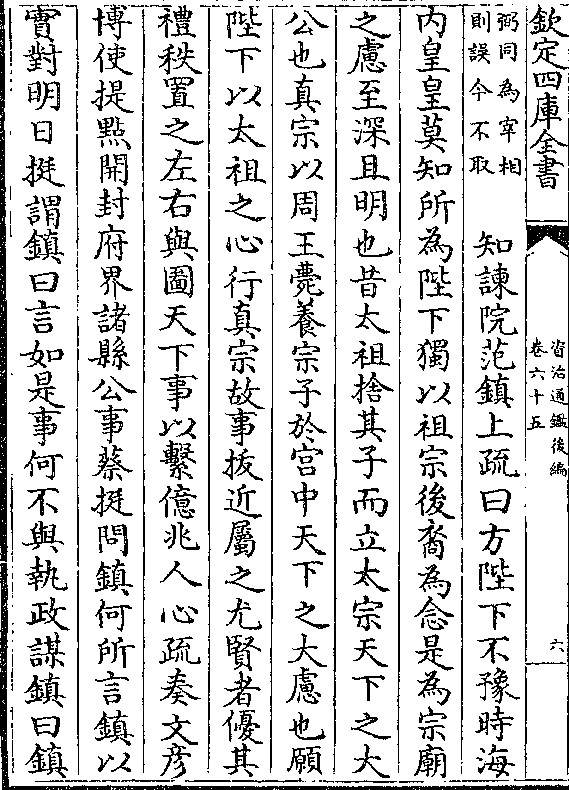 欽定四庫全書
資治通鑑後編
卷六十五
六
弼同為宰相
則誤今不取
知諫院范鎮上疏曰方陛下不豫時海
内皇皇莫知所為陛下獨以祖宗後裔為念是為宗廟
之慮至深且明也昔太祖捨其子而立太宗天下之大
公也真宗以周王薨養宗子於宫中天下之大慮也願
陛下以太祖之心行真宗故事拔近屬之尤賢者優其
禮秩置之左右與圖天下事以繫億兆人心疏奏文彦
博使提點開封府界諸縣公事蔡挺問鎮何所言鎮以
實對明日挺謂鎮曰言如是事何不與執政謀鎮曰鎮